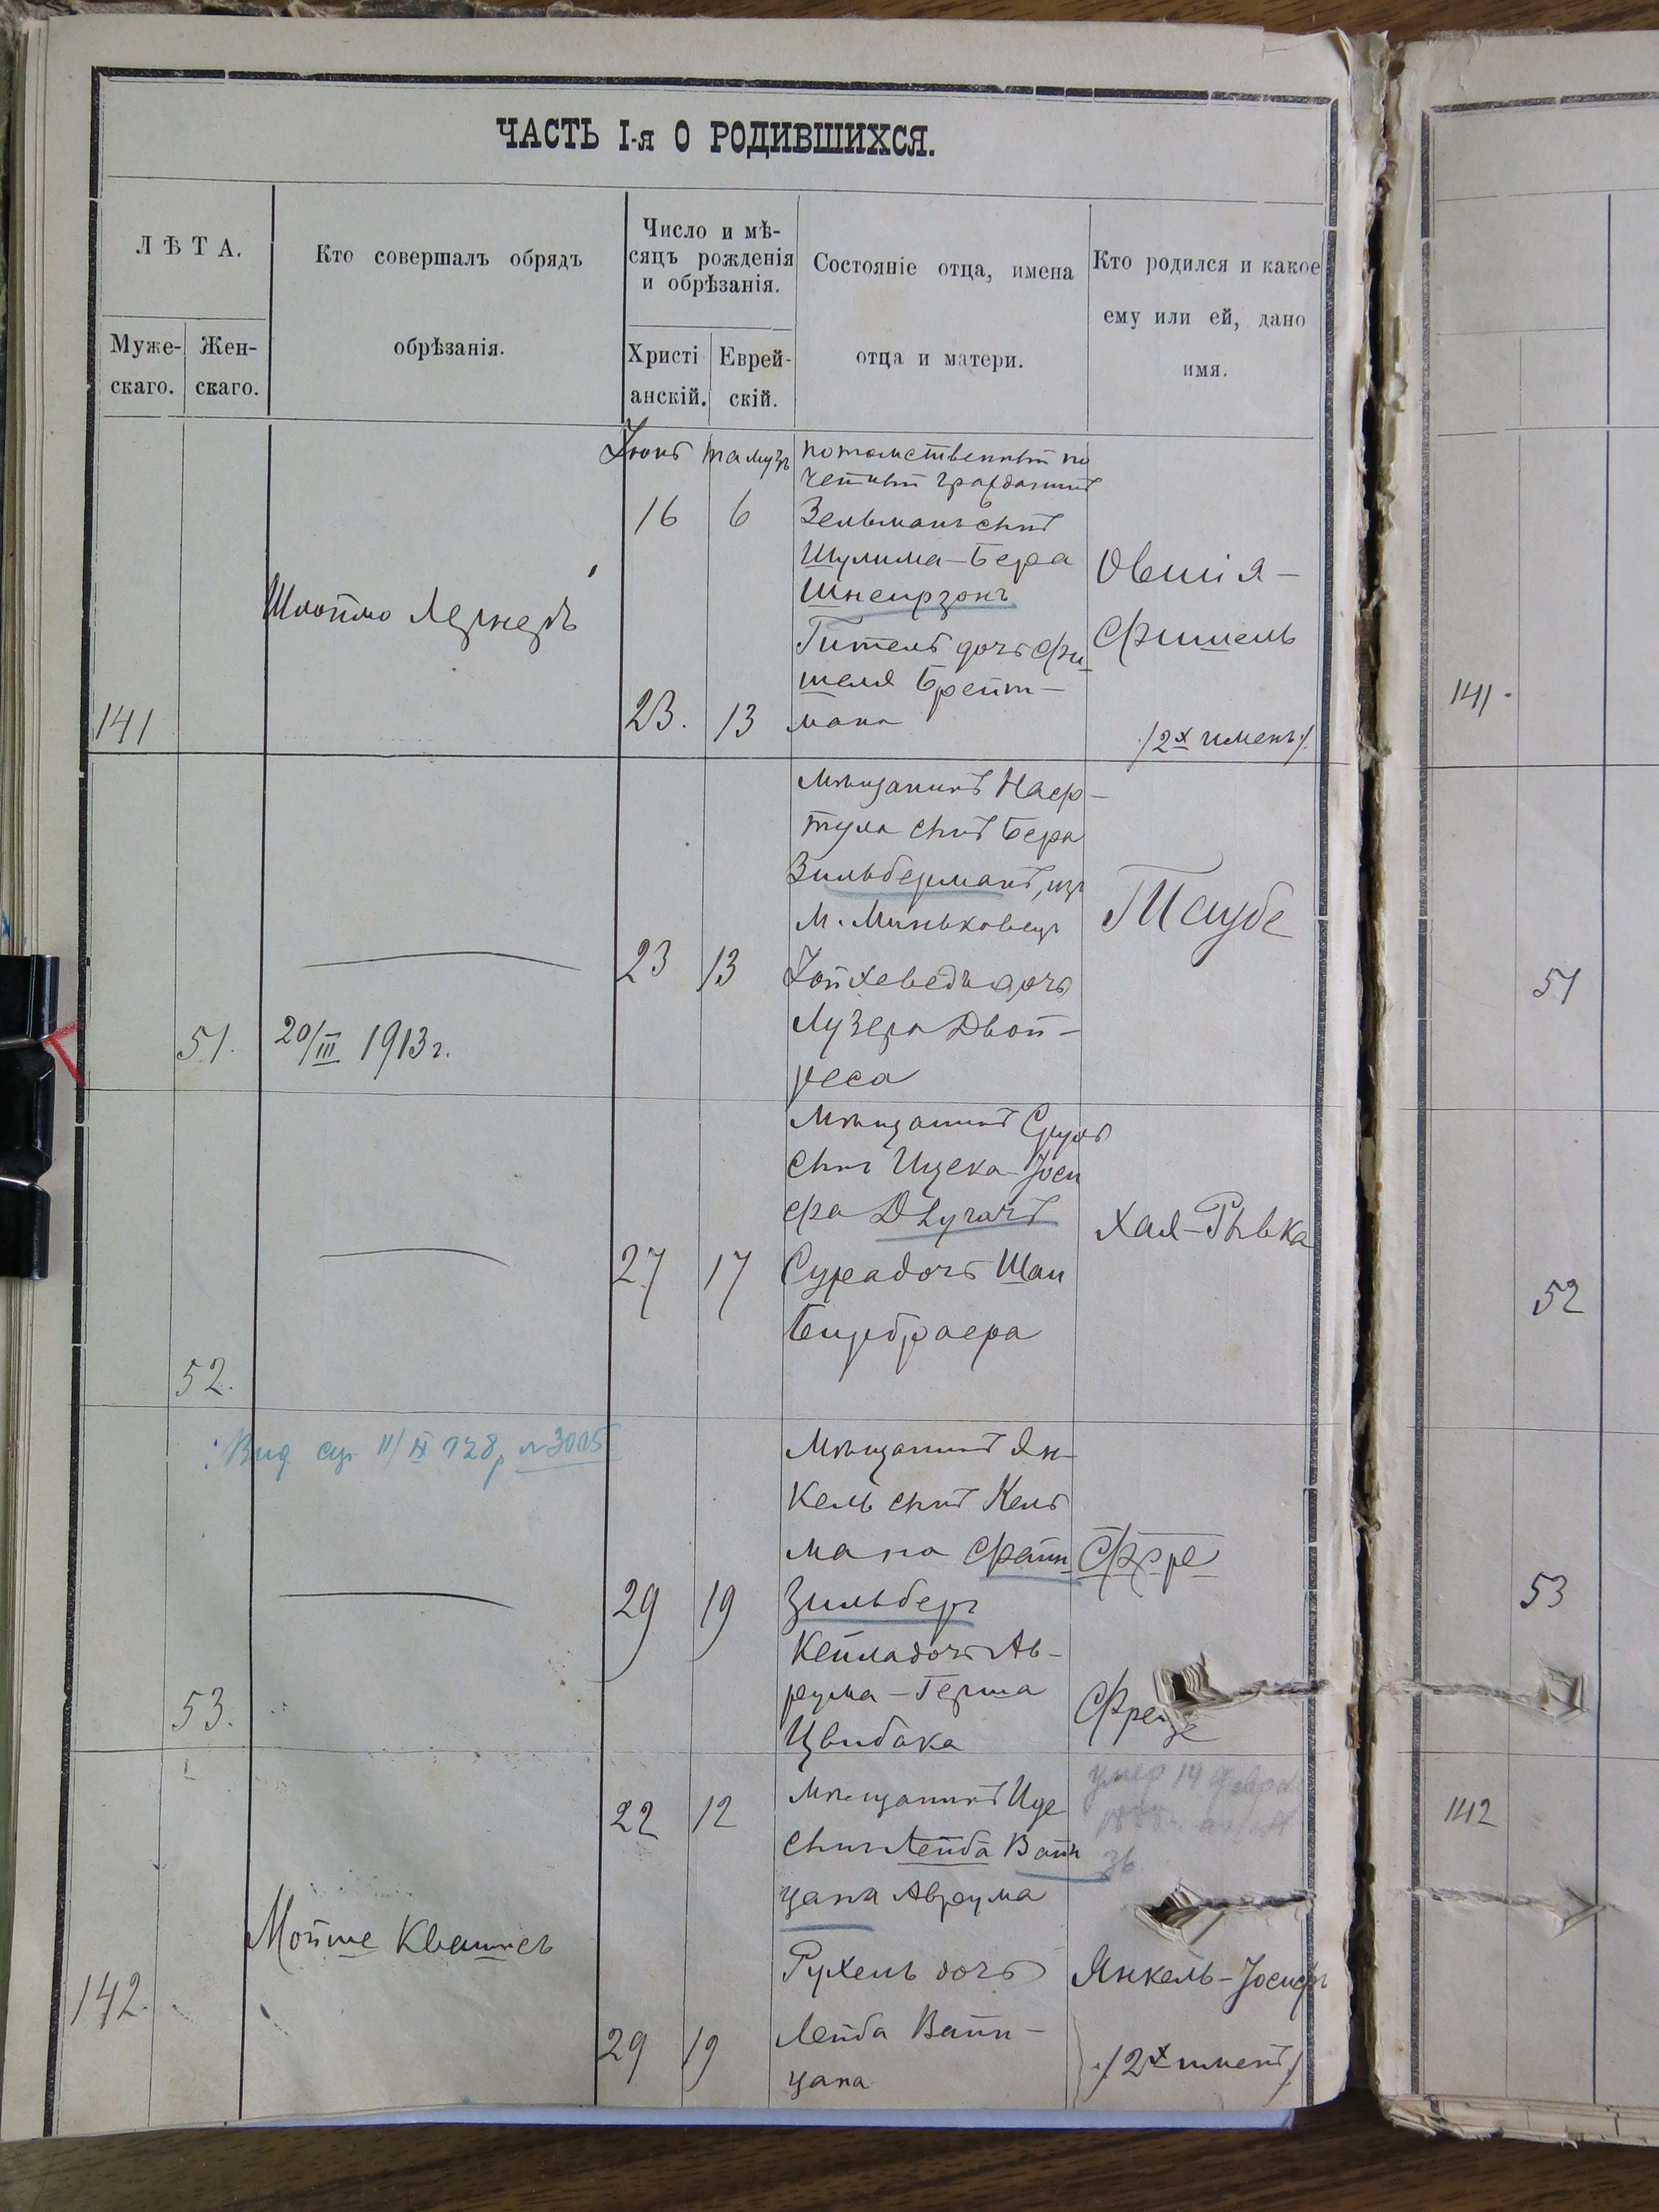 ЧАСТЬ I-я О РОДИВШИХСЯ.
ЛѢТА.
Муже-
скаго.
Жен-
скаго.
Кто совершалъ обрядъ
обрѣзанія.
Число и мѣ-
сяцъ рожденія
и обрѣзанія.
Христі
анскій.
Еврей-
скій.
Состояніе отца, имена
отца и матери.
Кто родился и какое
ему или ей, дано
имя.
141
Шлойме Лернеръ
Іюнь
16
23.
тамузъ
6
13
потомственный по
четный гражданинъ
Зельманъ сынъ
Шулима-Бера
Шнеирзонъ
Гитель дочь Фи
шеля Брейт-
мана
Овшія-
Фишель
/2х именъ/.
141.
51.
20/III 1913 г.
23
13
Мѣщанинъ Наф-
тула сынъ Бера
Зильберманъ, изъ
М. Миньковецъ
Іойхеведъ дочь
Лузера Двой-
реса
Таубе
51
52.
27
17
Мѣщанинъ Сруль
сынъ Ицека-Іоси
фа Длугачъ
Сура дочь Шаи
Бирбраера
Хая-Рывка
52
Выд. 11/IX 928 р № 3005
53.
29
19
Мѣщанинъ Ян-
кель сынъ Кель
мана Файн
зильберъ
Кейла дочь Ав-
рума-Герша
Цвибака
Фрейде
53
142.
Мойше Квашнеръ
22
12
29
19
Мѣщанинъ Иде
сынъ Лейба Вайн
цана Аврума
Рухель дочь
Лейба Вайн-
цана
умер 14 февраля
36
Янкель-Іосифъ
/2х именъ/
142